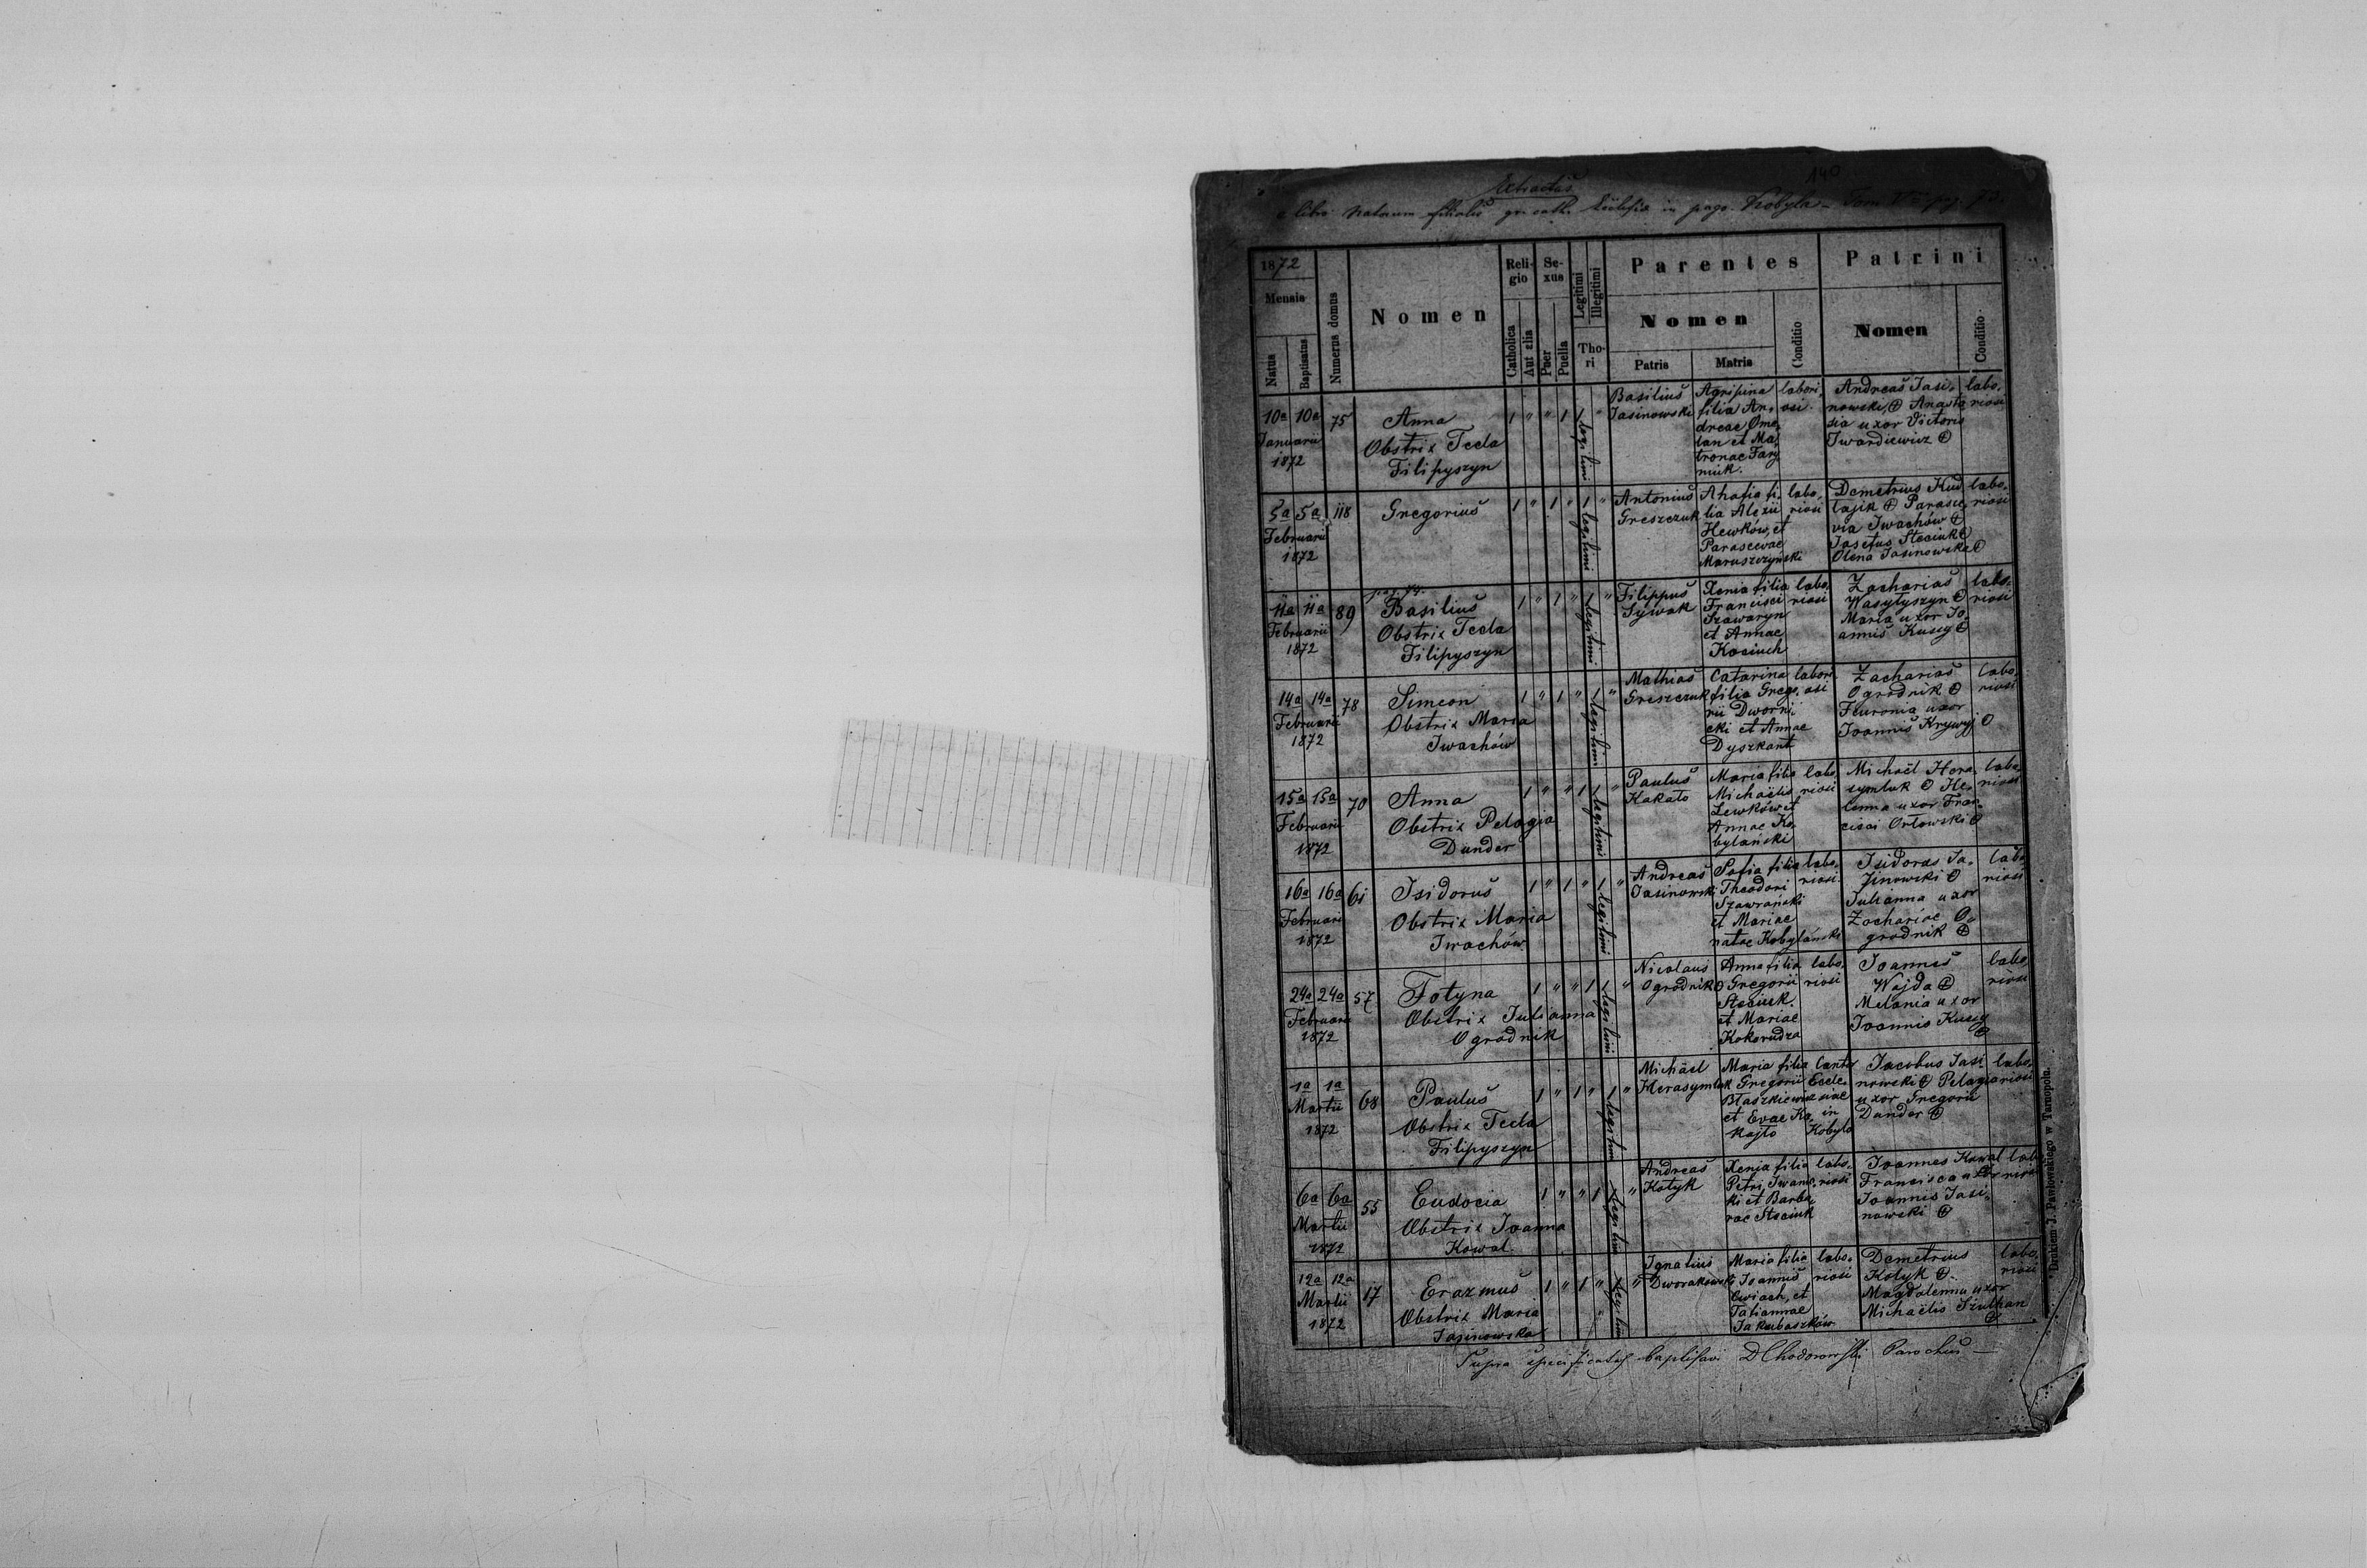 140
Extractus
e libro Natorum filialis gr. cath. Ecclesia in pago Kobyla – Tom V pag. 73.
1872
Mensis
Natus
Baptisatus
Numerus domus
Nomen
Religio
Catholica
Aut alia
Sexus
Puer
Puella
Legitimi
Illegitimi
Thori
Parentes
Nomen
Patris
Matris
Conditio
Patrini
Nomen
Conditio
10a 10a
Januarii
1872
75
Anna
Obstrix Tecla
Filipyszyn
1 " " 1 1 "
legitimi
Basilius
Jasinowski
Agripina
filia An-
dreae Ome-
lan et Ma-
tronae Farg
niuk.
labori
osi.
Andreas Jasi-
nowski, Anasta-
sia uxor Victoris
Twardiewicz
labo-
riosi
5a 5a
Februarii
1872
118
Gregorius
1 " 1 " 1 "
legitimi
Antonius
Greszczuk
Ahafia fi-
lia Alexii
Hewków, et
Parascevae
Maruszczyński
labo-
riosi
Demetrius Kud
lajik Parasce-
via Iwachów
Josefus Steciuk
Olena Jasinowska
labo-
riosi
11a 11a
Februarii
1872
89
Basilius
Obstrix Tecla
Filipyszyn
1 " 1 " 1 "
legitimi
Filippus
Sywak
Xenia filia
Francisci
Szawaryn
et Annae
Kosiuch
labo-
riosi
Zacharias
Wasylyszyn
Maria uxor Jo-
annis Kusey
labo-
riosi
14a 14a
Februarii
1872
78
Simeon
Obstrix Maria
Iwachów
1 " 1 " 1 "
legitimi
Mathias
Greszczuk
Catarina
filia Grego-
rii Dworni-
cki et Annae
Dyszkant
labori
osi
Zacharias
Ogrodnik
Feuronia uxor
Joannis Krywyj
labo-
riosi
15a 15a
Februarii
1872
70
Anna
Obstrix Pelagia
Dunder
1 " " 1 1 "
legitimi
Paulus
Kakato
Maria filia
Michaelis
Lewków et
Annae Ko-
bylański
labo-
riosi
Michaël Hera-
symluk He-
lenna uxor Fran-
cisci Orłowski
labo-
riosi
16a 16a
Februarii
1872
61
Isidorus
Obstrix Maria
Iwachów
1 " 1 " 1 "
legitimi
Andreas
Jasinowski
Sofia filia
Theodori
Szawrański
et Mariae
natae Kobylański
labo-
riosi
Isidorus Ja-
sinowski
Julianna uxor
Zachariae O-
grodnik
labo-
riosi
24a 24a
Februarii
1872
57
Fotyna
Obstrix Julianna
Ogrodnik
1 " " 1 1 "
legitimi
Nicolaus
Ogrodnik
Anna filia
Gregorii
Steciuk.
et Mariae
Kokorudza
labo-
riosi
Joannes
Wajda
Melania uxor
Joannis Kusey
labo-
riosi
1a 1a
Martii
1872
68
Paulus
Obstrix Tecla
Filipyszyn
1 " 1 " 1 "
legitimi
Michäel
Herasymluk
Maria filia
Gregorii
Błaszkiewicz
et Evae Ko-
kajto
Cantor
Eccle-
siae
in
Kobyla
Jacobus Jasi-
nowski Pelagia
uxor Gregorii
Dunder
labo-
riosi
6a 6a
Martii
1872
55
Eudocia
Obstrix Joanna
Kowal.
1 " " 1 1 "
legitimi
Andreas
Kotyk
Xenia filia
Petri Iwanic-
ki et Barba-
rae Steciuk
labo-
riosi
Joannes Kowal
Francisca uxor
Joannis Jasi-
nowski
labo-
riosi
12a 12a
Martii
1872
17
Erazmus
Obstrix Maria
Jasinowska
1 " 1 " 1 "
legitimi
Ignatius
Dworakowski
Maria filia
Joannis
Cwiach, et
Tatiannae
Jakubaszków
labo-
riosi
Demetrius
Kotyk.
Magdalenna uxor
Michaëlis Szulhan
labo-
riosi
Supra specificatos baptisavi DChodorowski Parochus –
Drukiem J. Pawłowskiego w Tarnopolu.